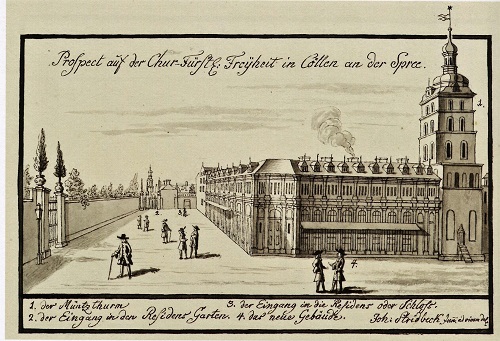 Prospect auf der Chur-Fürstl: Freÿheit in Cöllen an der Spree.
1.
4.
1. der Müntzthurm 3. der Eingang in die Residens oder Schloß.
2. der Eingang in den Residens Garten. 4. das neue Gebäude. Joh: Stridbeck